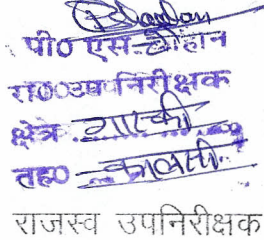 पी० एस० चौहान
रा०उप निरीक्षक
क्षेत्र
तह० कालसी
राजस्व उपनिरीक्षक